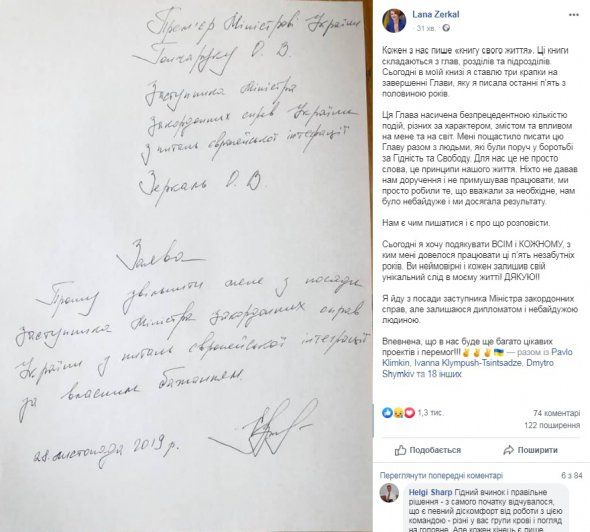 Прем'єр Міністрові України
Гончаруку О. В.
Заступника Міністра
Закордонних справ України
з питань європейської інтеграції
Зеркаль О. В
Заява
Прошу звільнити мене з посади
Заступника Міністра Закордонних справ
України з питань європейської інтеграції
за власним бажанням.
28 листопада 2019 р.
Lana Zerkal
31 хв. ·
Кожен з нас пише «книгу свого життя». Ці книги
складаються з глав, розділів та підрозділів.
Сьогодні в моїй книзі я ставлю три крапки на
завершенні Глави, яку я писала останні п'ять з
половиною років.
Ця Глава насичена безпрецедентною кількістю
подій, різних за характером, змістом та впливом
на мене та на світ. Мені пощастило писати цю
Главу разом з людьми, які були поруч у боротьбі
за Гідність та Свободу. Для нас це не просто
слова, це принципи нашого життя. Ніхто не давав
нам доручення і не примушував працювати, ми
просто робили те, що вважали за необхідне, нам
було небайдуже і ми досягала результату.
Нам є чим пишатися і є про що розповісти.
Сьогодні я хочу подякувати ВСІМ і КОЖНОМУ, з
ким мені довелося працювати ці п'ять незабутніх
років. Ви неймовірні і кожен залишив свій
унікальний слід в моєму житті! ДЯКУЮ!!
Я йду з посади заступника Міністра закордонних
справ, але залишаюся дипломатом і небайдужою
людиною.
Впевнена, що в нас буде ще багато цікавих
проектів і перемог!!! — разом із Pavlo
Klimkin, Ivanna Klympush-Tsintsadze, Dmytro
Shymkiv та 18 інших.
1,3 тис.
74 коментарі
122 поширення
Подобається
Поширити
Переглянути попередні коментарі
6 з 84
Helgi Sharp Гідний вчинок і правильне
рішення - з самого початку відчувалося,
що є певний діскомфорт від роботи з цією
командою - різні у вас групи крові і погляд
на головне. Але кожен кінець є лише